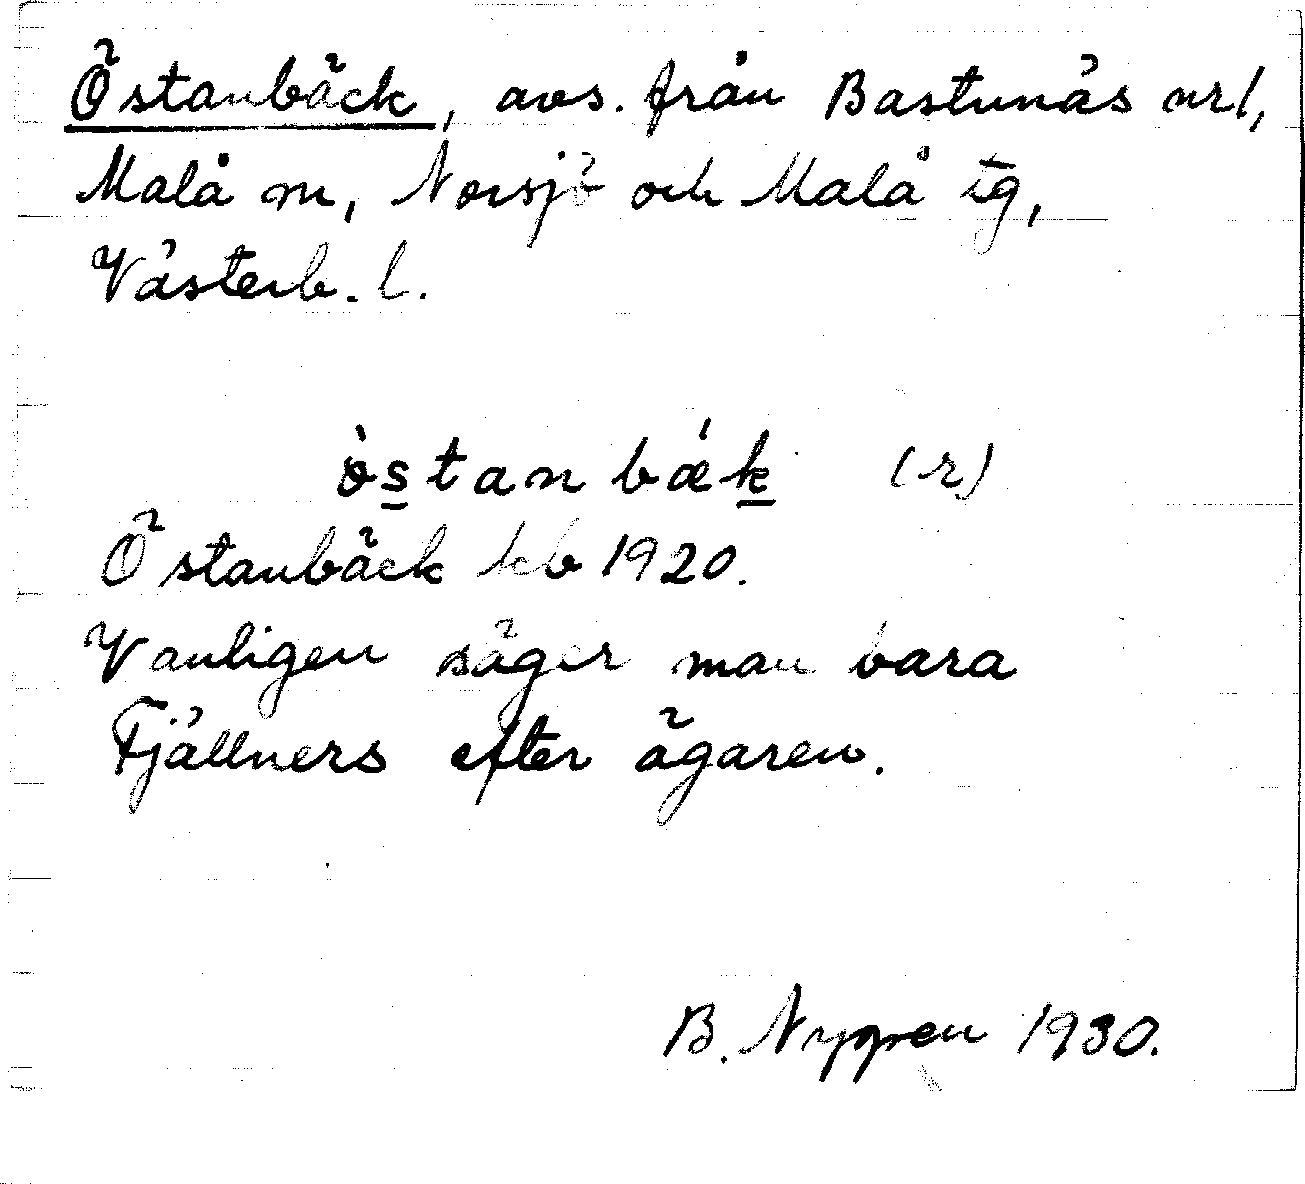 Östanbäck, avs. från Bastunäs nr 1,
Malå sn, Norsjö och Malå tg,
Västerb. l.
ò̀stanbǽk (r)
Östanbäck kb 1920.
Vanligen säger man bara
Fjällners efter ägaren.
B. Nygren 1930.